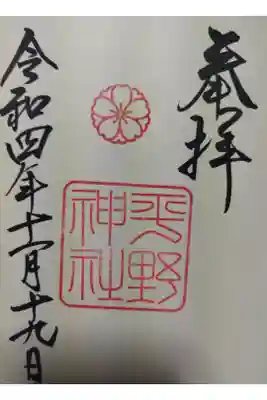 奉拝
平野
神社
令和四年十一月十九日